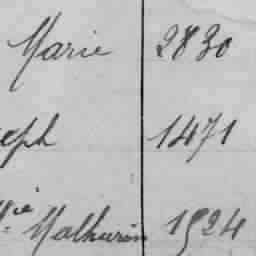 Marie 2830
eph 1471
Mie Mathurin 1924